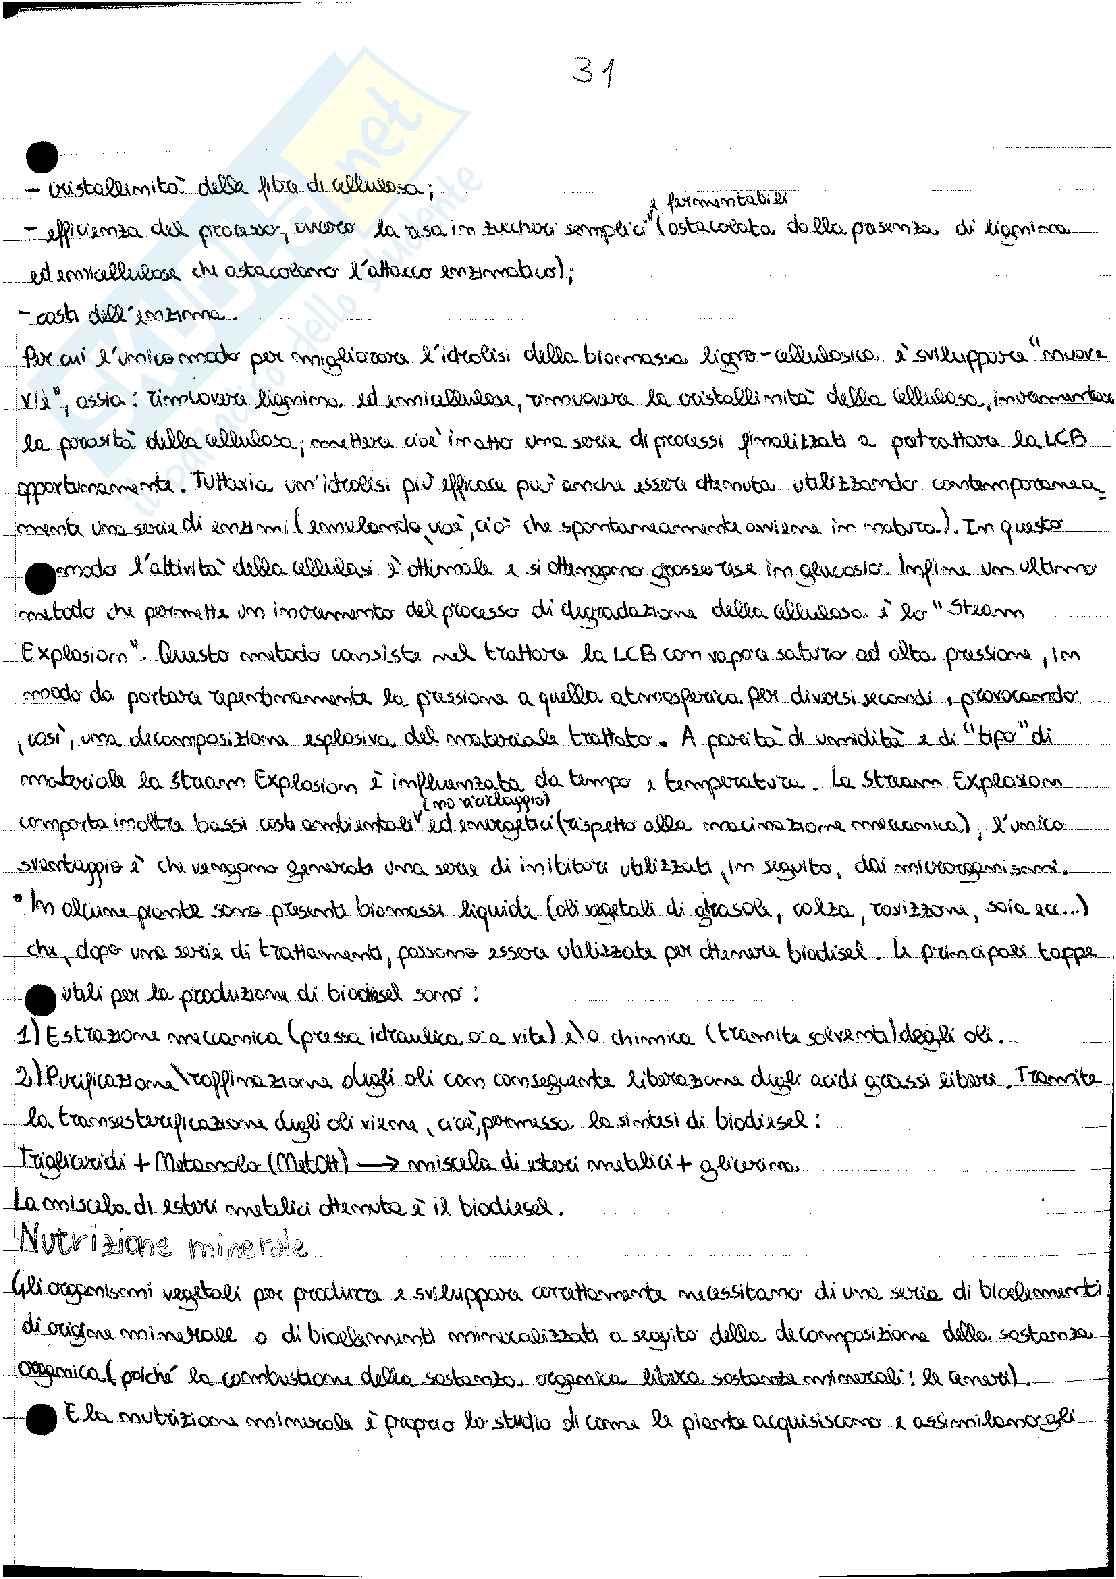 31
- cristallinità della fibra di cellulosa;
- efficienza del processo, ovvero la resa in zuccheri semplici e fermentabili (ostacolata dalla presenza di lignina
ed emicellulose che ostacolano l'attacco enzimatico);
- costi dell'enzima.
Per cui l'unico modo per migliorare l'idrolisi della biomassa ligno-cellulosica è sviluppare "nuove
vie", ossia: rimuovere lignina ed emicellulose, rimuovere la cristallinità della cellulosa, incrementare
la porosità della cellulosa; mettere cioè in atto una serie di processi finalizzati a pretrattare la LCB
opportunamente. Tuttavia un'idrolisi più efficace può anche essere ottenuta utilizzando contemporanea-
mente una serie di enzimi (emulando, cioè, ciò che spontaneamente avviene in natura). In questo
modo l'attività della cellulasi è ottimale e si ottengono grosse rese in glucosio. Infine un ultimo
metodo che permette un incremento del processo di degradazione della cellulosa è lo "Steam
Explosion". Questo metodo consiste nel trattare la LCB con vapore saturo ad alta pressione, in
modo da portare repentinamente la pressione a quella atmosferica per diversi secondi, provocando
, così, una decomposizione esplosiva del materiale trattato. A parità di umidità e di "tipo" di
materiale la Steam Explosion è influenzata da tempo e temperatura. La Steam Explosion
comporta inoltre bassi costi ambientali (no riciclaggio) ed energetici (rispetto alla macinazione meccanica), l'unico
svantaggio è che vengono generati una serie di inibitori utilizzati, in seguito, dai microrganismi.
° In alcune piante sono presenti biomassi liquide (oli vegetali di girasole, colza, ravizzone, soia ecc...)
che, dopo una serie di trattamenti, possono essere utilizzate per ottenere biodisel. Le principali tappe
utili per la produzione di biodiesel sono:
1) Estrazione meccanica (pressa idraulica o a vite) e\o chimica (tramite solvente) degli oli.
2) Purificazione\raffinazione degli oli con conseguente liberazione degli acidi grassi liberi. Tramite
la transesterificazione degli oli viene, cioè, permessa la sintesi di biodiesel:
Trigliceridi + Metanolo (MetOH) → miscela di esteri metilici + glicerina.
La miscela di esteri metilici ottenuta è il biodiesel.
Nutrizione minerale
Gli organismi vegetali per produrre e sviluppare correttamente necessitano di una serie di bioelementi
di origine minerale o di bioelementi mineralizzati a seguito della decomposizione della sostanza
organica (poiché la combustione della sostanza organica libera sostanze minerali: le ceneri).
E la nutrizione minerale è proprio lo studio di come le piante acquisiscono e assimilano gli